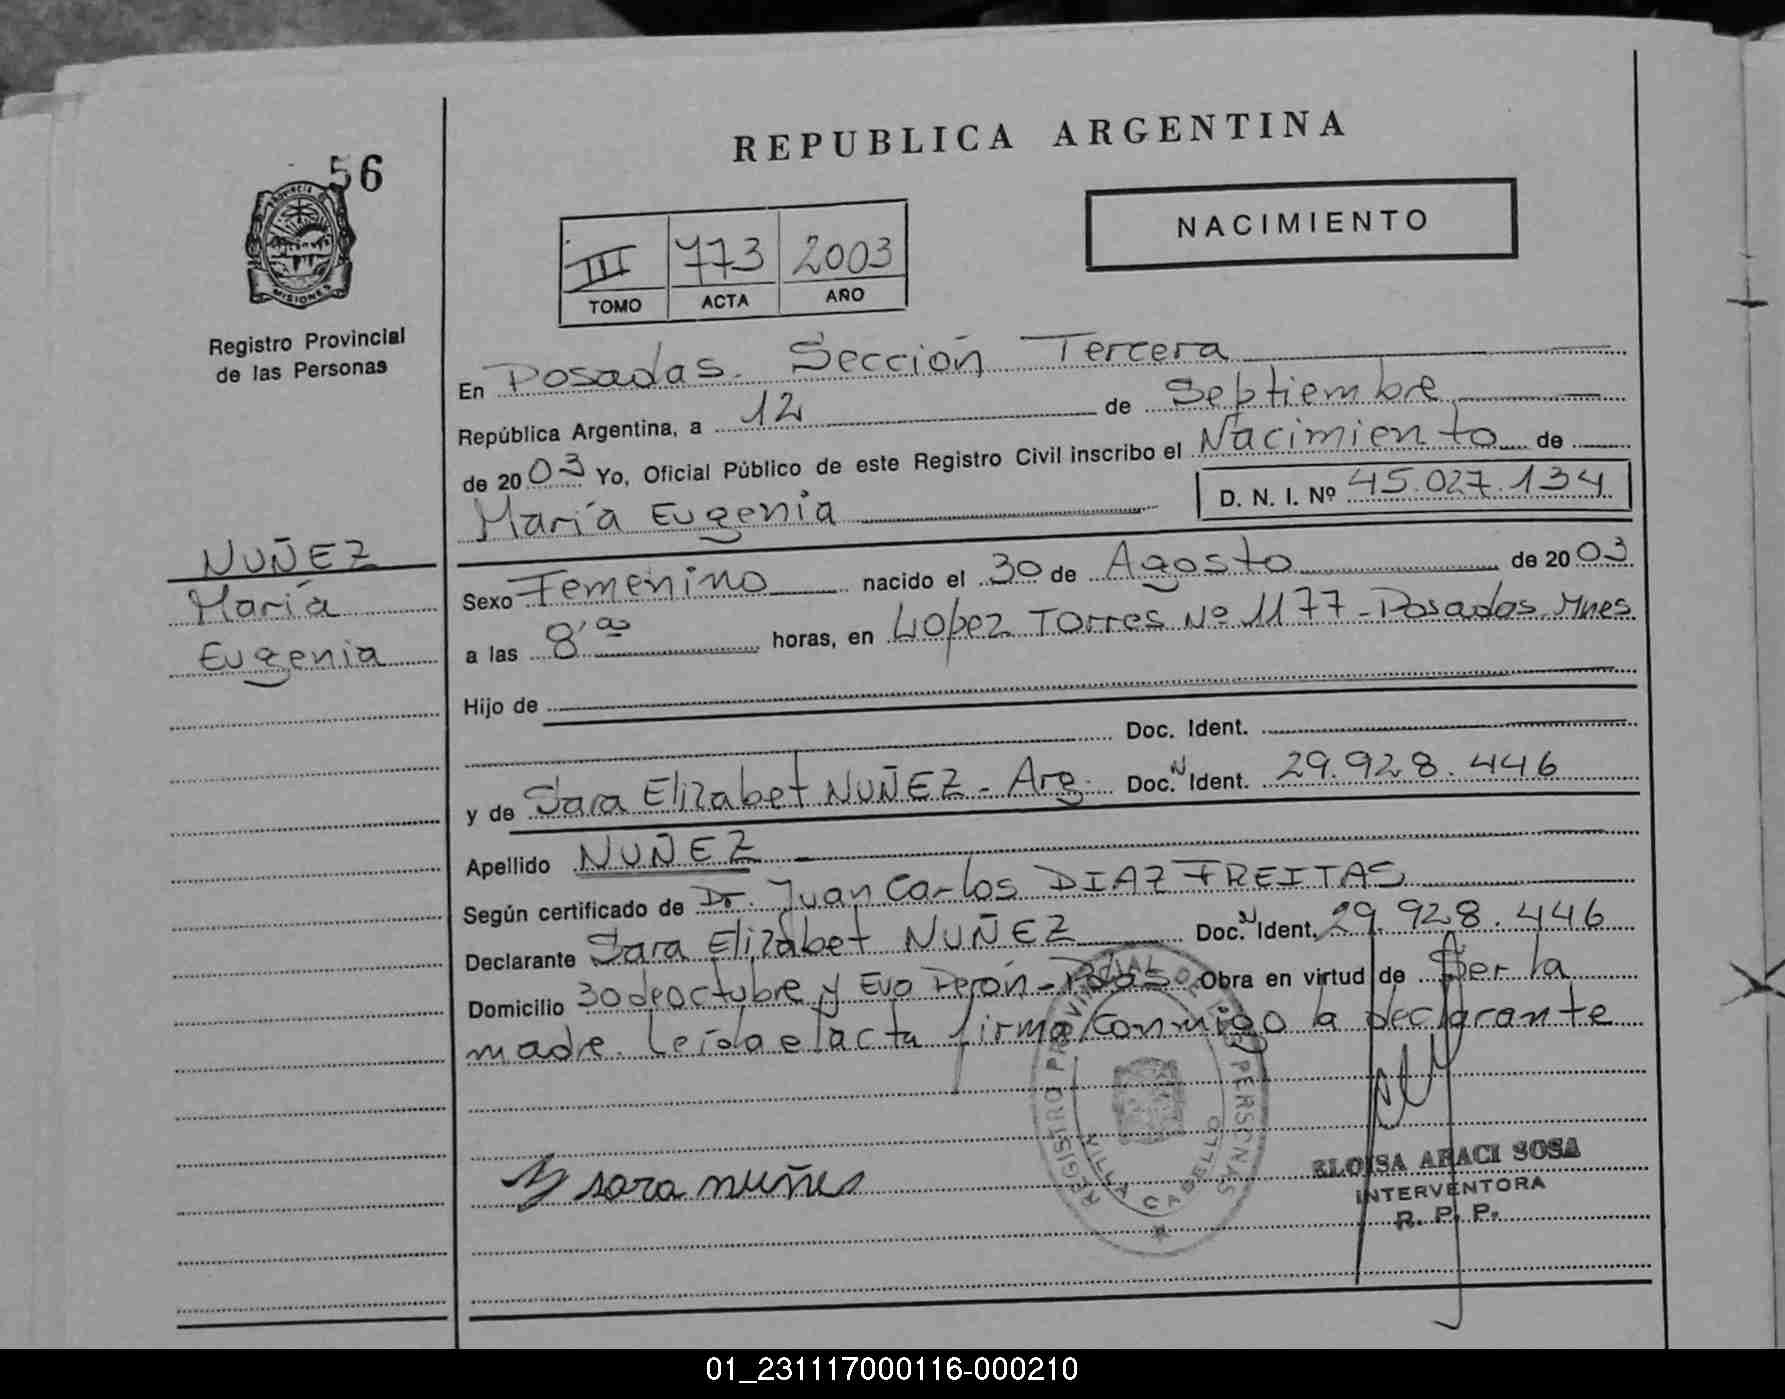 REPUBLICA ARGENTINA
56
PROVINCIA DE
MISIONES
Registro Provincial
de las Personas
NACIMIENTO
III 773 2003
TOMO ACTA AÑO
En Posadas. Sección Tercera
República Argentina, a 12 de Septiembre
de 2003 Yo, Oficial Público de este Registro Civil inscribo el Nacimiento de
María Eugenia D. N. I. Nº 45.027.134
NUÑEZ
María
Eugenia
Sexo Femenino nacido el 30 de Agosto de 2003
a las 8'as horas, en Lopez Torres Nº 1177 - Posadas Mnes
Hijo de
Doc. Ident.
y de Sara Elizabet NUÑEZ - Arg. Doc. N Ident. 29.928.446
Apellido NUÑEZ
Según certificado de Dr. Juan Carlos DIAZ FREITAS
Declarante Sara Elizabet NUÑEZ Doc. N Ident. 29.928.446
Domicilio 30 de octubre y Eva Perón - Pdas Obra en virtud de Ser la
madre. Leída el acta firma conmigo la declarante
REGISTRO PROVINCIAL DE LAS PERSONAS
VILLA CABELLO
sara nuñes
ELOISA ARACI SOSA
INTERVENTORA
R. P. P.
01_231117000116-000210